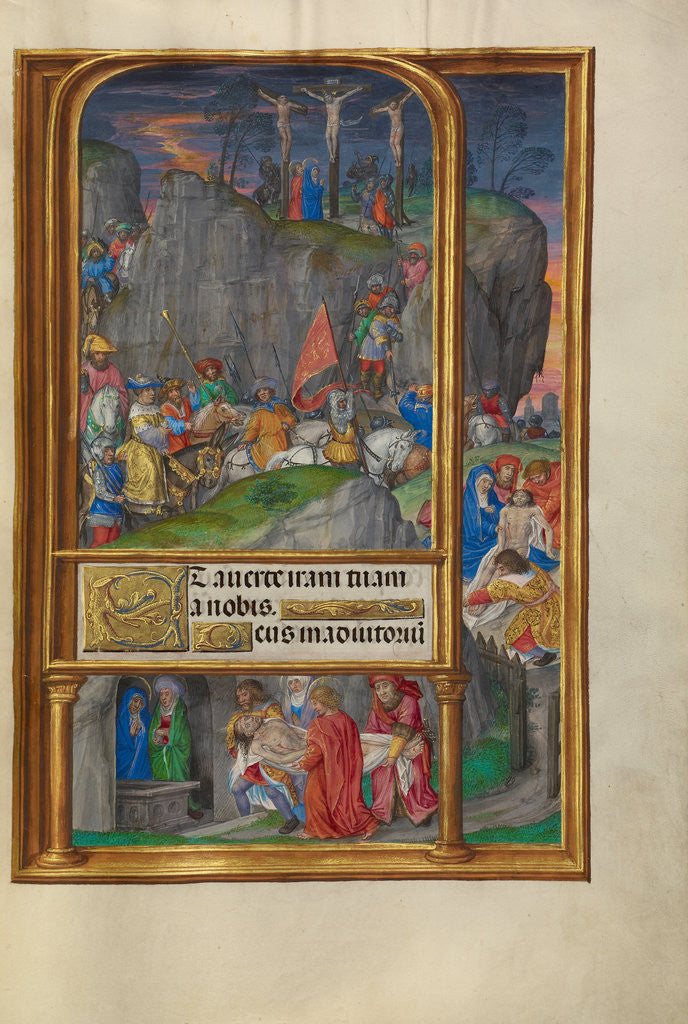 ET auerte iram tuam
a nobis.
Deus in adiutoriū